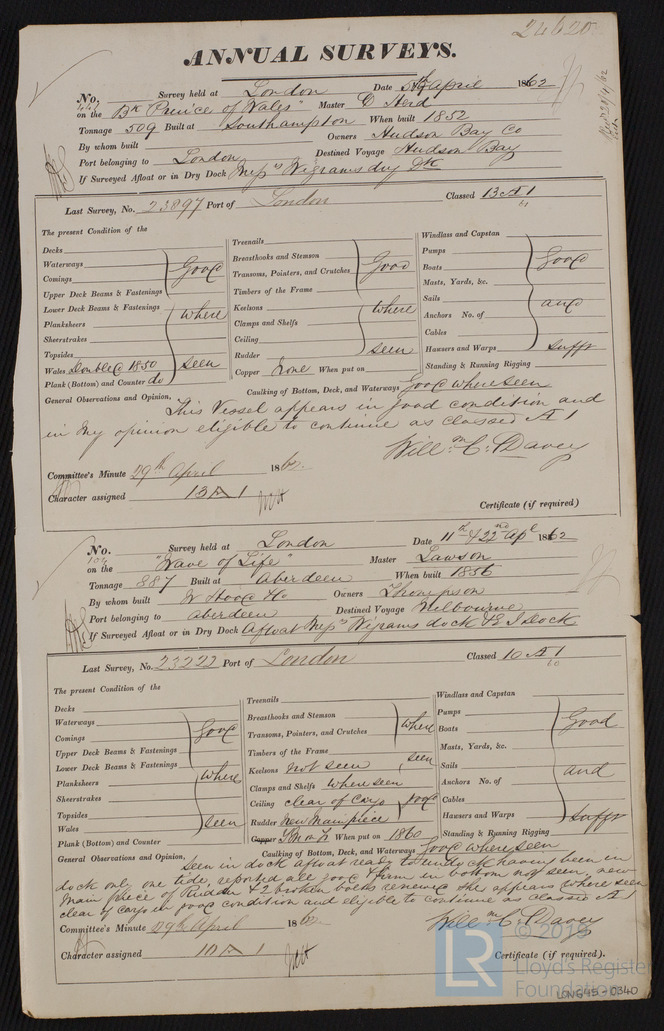 24620
ANNUAL SURVEYS.
No. Survey held at London Date 5th April 1862
on the Bk "Prince of Wales" Master C Herd
Tonnage 509 Built at Southampton When built 1852
By whom built Owners Hudson Bay Co
Port belonging to London Destined Voyage Hudson Bay
If Surveyed Afloat or in Dry Dock Messrs Wigrams dry Dk
Last Survey, No. 23897 Port of London Classed 13 A 1
The present Condition of the
Decks
Waterways
Comings
Upper Deck Beams & Fastenings
Good
Lower Deck Beams & Fastenings
Planksheers
Sheerstrakes
Topsides
Wales Doubled 1850
Plank (Bottom) and Counter do
where
seen
Treenails
Breasthooks and Stemson
Transoms, Pointers, and Crutches
Timbers of the Frame
Good
Keelsons
Clamps and Shelfs
Ceiling
Rudder
where
seen
Copper When put on
Windlass and Capstan
Pumps
Boats
Masts, Yards, &c.
Sails
Anchors No. of
Cables
Hawsers and Warps
Standing & Running Rigging
Good
and
Sufft
Caulking of Bottom, Deck, and Waterways Good where seen
General Observations and Opinion, This Vessel appears in good condition and
in my opinion eligible to continue as classed A 1
Will. m. C. Davey
Committee's Minute 29th April 1862
Character assigned 13 A 1
Certificate (if required)
No. Survey held at London Date 11th & 22nd Apl 1862
on the "Wave of Life" Master Lawson
Tonnage 887 Built at Aberdeen When built 1856
By whom built W Hood & Co Owners Thompson
Port belonging to Aberdeen Destined Voyage Melbourne
If Surveyed Afloat or in Dry Dock Afloat Messrs Wigrams dock & E I Dock
Last Survey, No. 23222 Port of London Classed 10 A 1
The present Condition of the
Decks
Waterways
Comings
Upper Deck Beams & Fastenings
Lower Deck Beams & Fastenings
Good
Planksheers
Sheerstrakes
Topsides
Wales
Plank (Bottom) and Counter
where
seen
Treenails
Breasthooks and Stemson
Transoms, Pointers, and Crutches
Timbers of the Frame
where
seen
Keelsons not seen
Clamps and Shelfs where seen
Ceiling clear of Cargo good
Rudder New Main piece
Copper When put on 1860
Windlass and Capstan
Pumps
Boats
Masts, Yards, &c.
Sails
Anchors No. of
Cables
Hawsers and Warps
Standing & Running Rigging
Good
and
Sufft
Caulking of Bottom, Deck, and Waterways Good where seen
General Observations and Opinion, Seen in dock afloat ready to undock having been in
dock only one tide, reported all good & firm in bottom not seen, new
main piece of Rudder & 2 broken bolts renewed she appears where seen
clear of cargo in good condition and eligible to continue as classed A 1
Will. m. C. Davey
Committee's Minute 29th April 1862
Character assigned 10 A 1
Certificate (if required).
LR © 2019
Lloyd's Register
Foundation
LON645-0340